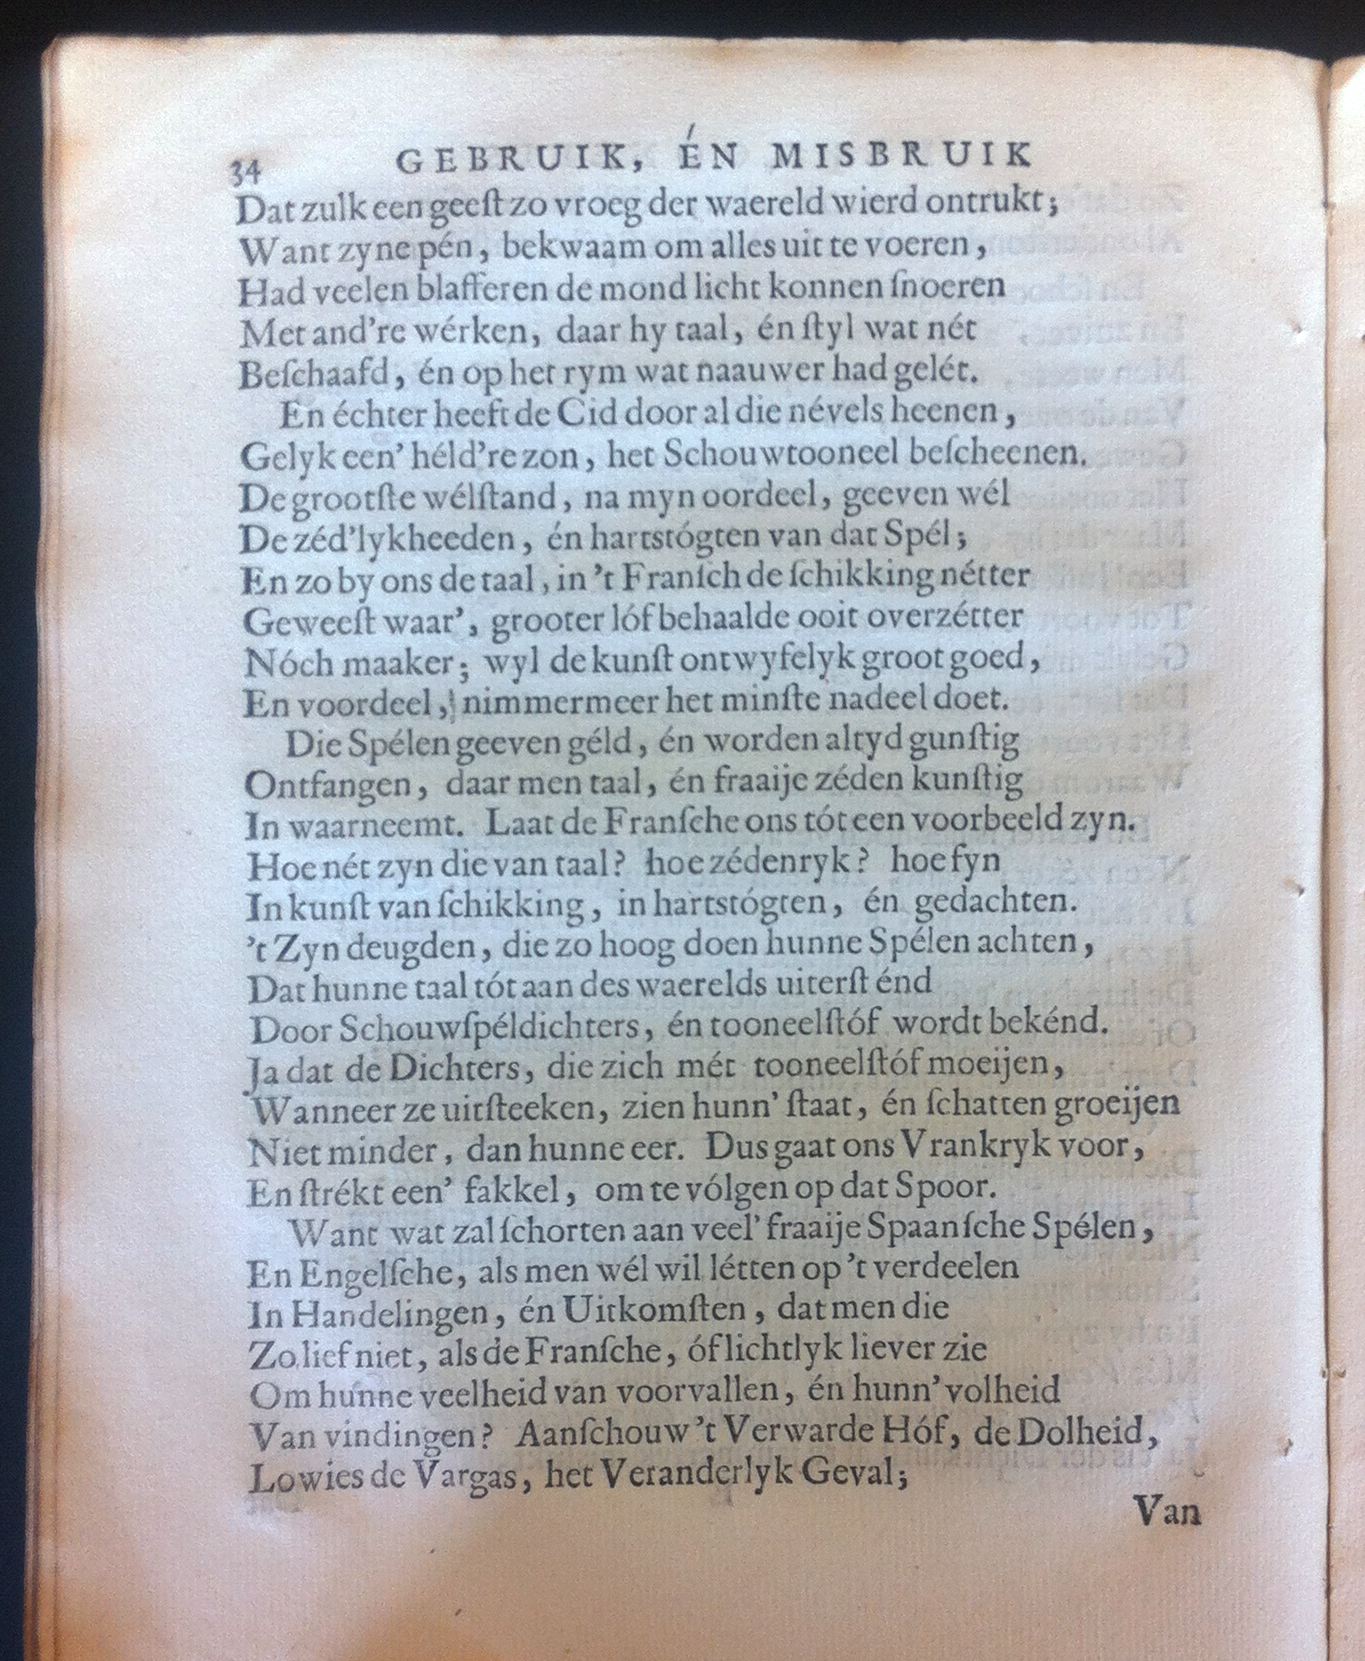 34 GEBRUIK, ÉN MISBRUIK
Dat zulk een geeſt zo vroeg der waereld wierd ontrukt;
Want zyne pén, bekwaam om alles uit te voeren,
Had veelen blafferen de mond licht konnen ſnoeren
Met and're wérken, daar hy taal, én ſtyl wat nét
Beſchaafd, én op het rym wat naauwer had gelét.
En échter heeft de Cid door al die névels heenen,
Gelyk een' héld're zon, het Schouwtooneel beſcheenen.
De grootſte wélſtand, na myn oordeel, geeven wél
De zéd'lykheeden, én hartstógten van dat Spél;
En zo by ons de taal, in 't Franſch de ſchikking nétter
Geweeſt waar', grooter lóf behaalde ooit overzétter
Nóch maaker; wyl de kunſt ontwyfelyk groot goed,
En voordeel, nimmermeer het minſte nadeel doet.
Die Spélen geeven géld, én worden altyd gunſtig
Ontfangen, daar men taal, én fraaije zéden kunſtig
In waarneemt. Laat de Franſche ons tót een voorbeeld zyn.
Hoe nét zyn die van taal? hoe zédenryk? hoe fyn
In kunſt van ſchikking, in hartstógten, én gedachten.
't Zyn deugden, die zo hoog doen hunne Spélen achten,
Dat hunne taal tót aan des waerelds uiterſt énd
Door Schouwſpéldichters, én tooneelſtóf wordt bekénd.
Ja dat de Dichters, die zich mét tooneelſtóf moeijen,
Wanneer ze uitſteeken, zien hunn' ſtaat, én ſchatten groeijen
Niet minder, dan hunne eer. Dus gaat ons Vrankryk voor,
En ſtrékt een' fakkel, om te vólgen op dat Spoor.
Want wat zal ſchorten aan veel' fraaije Spaanſche Spélen,
En Engelſche, als men wél wil létten op 't verdeelen
In Handelingen, én Uitkomſten, dat men die
Zo lief niet, als de Franſche, óf lichtlyk liever zie
Om hunne veelheid van voorvallen, én hunn' volheid
Van vindingen? Aanſchouw 't Verwarde Hóf, de Dolheid,
Lowies de Vargas, het Veranderlyk Geval;
Van